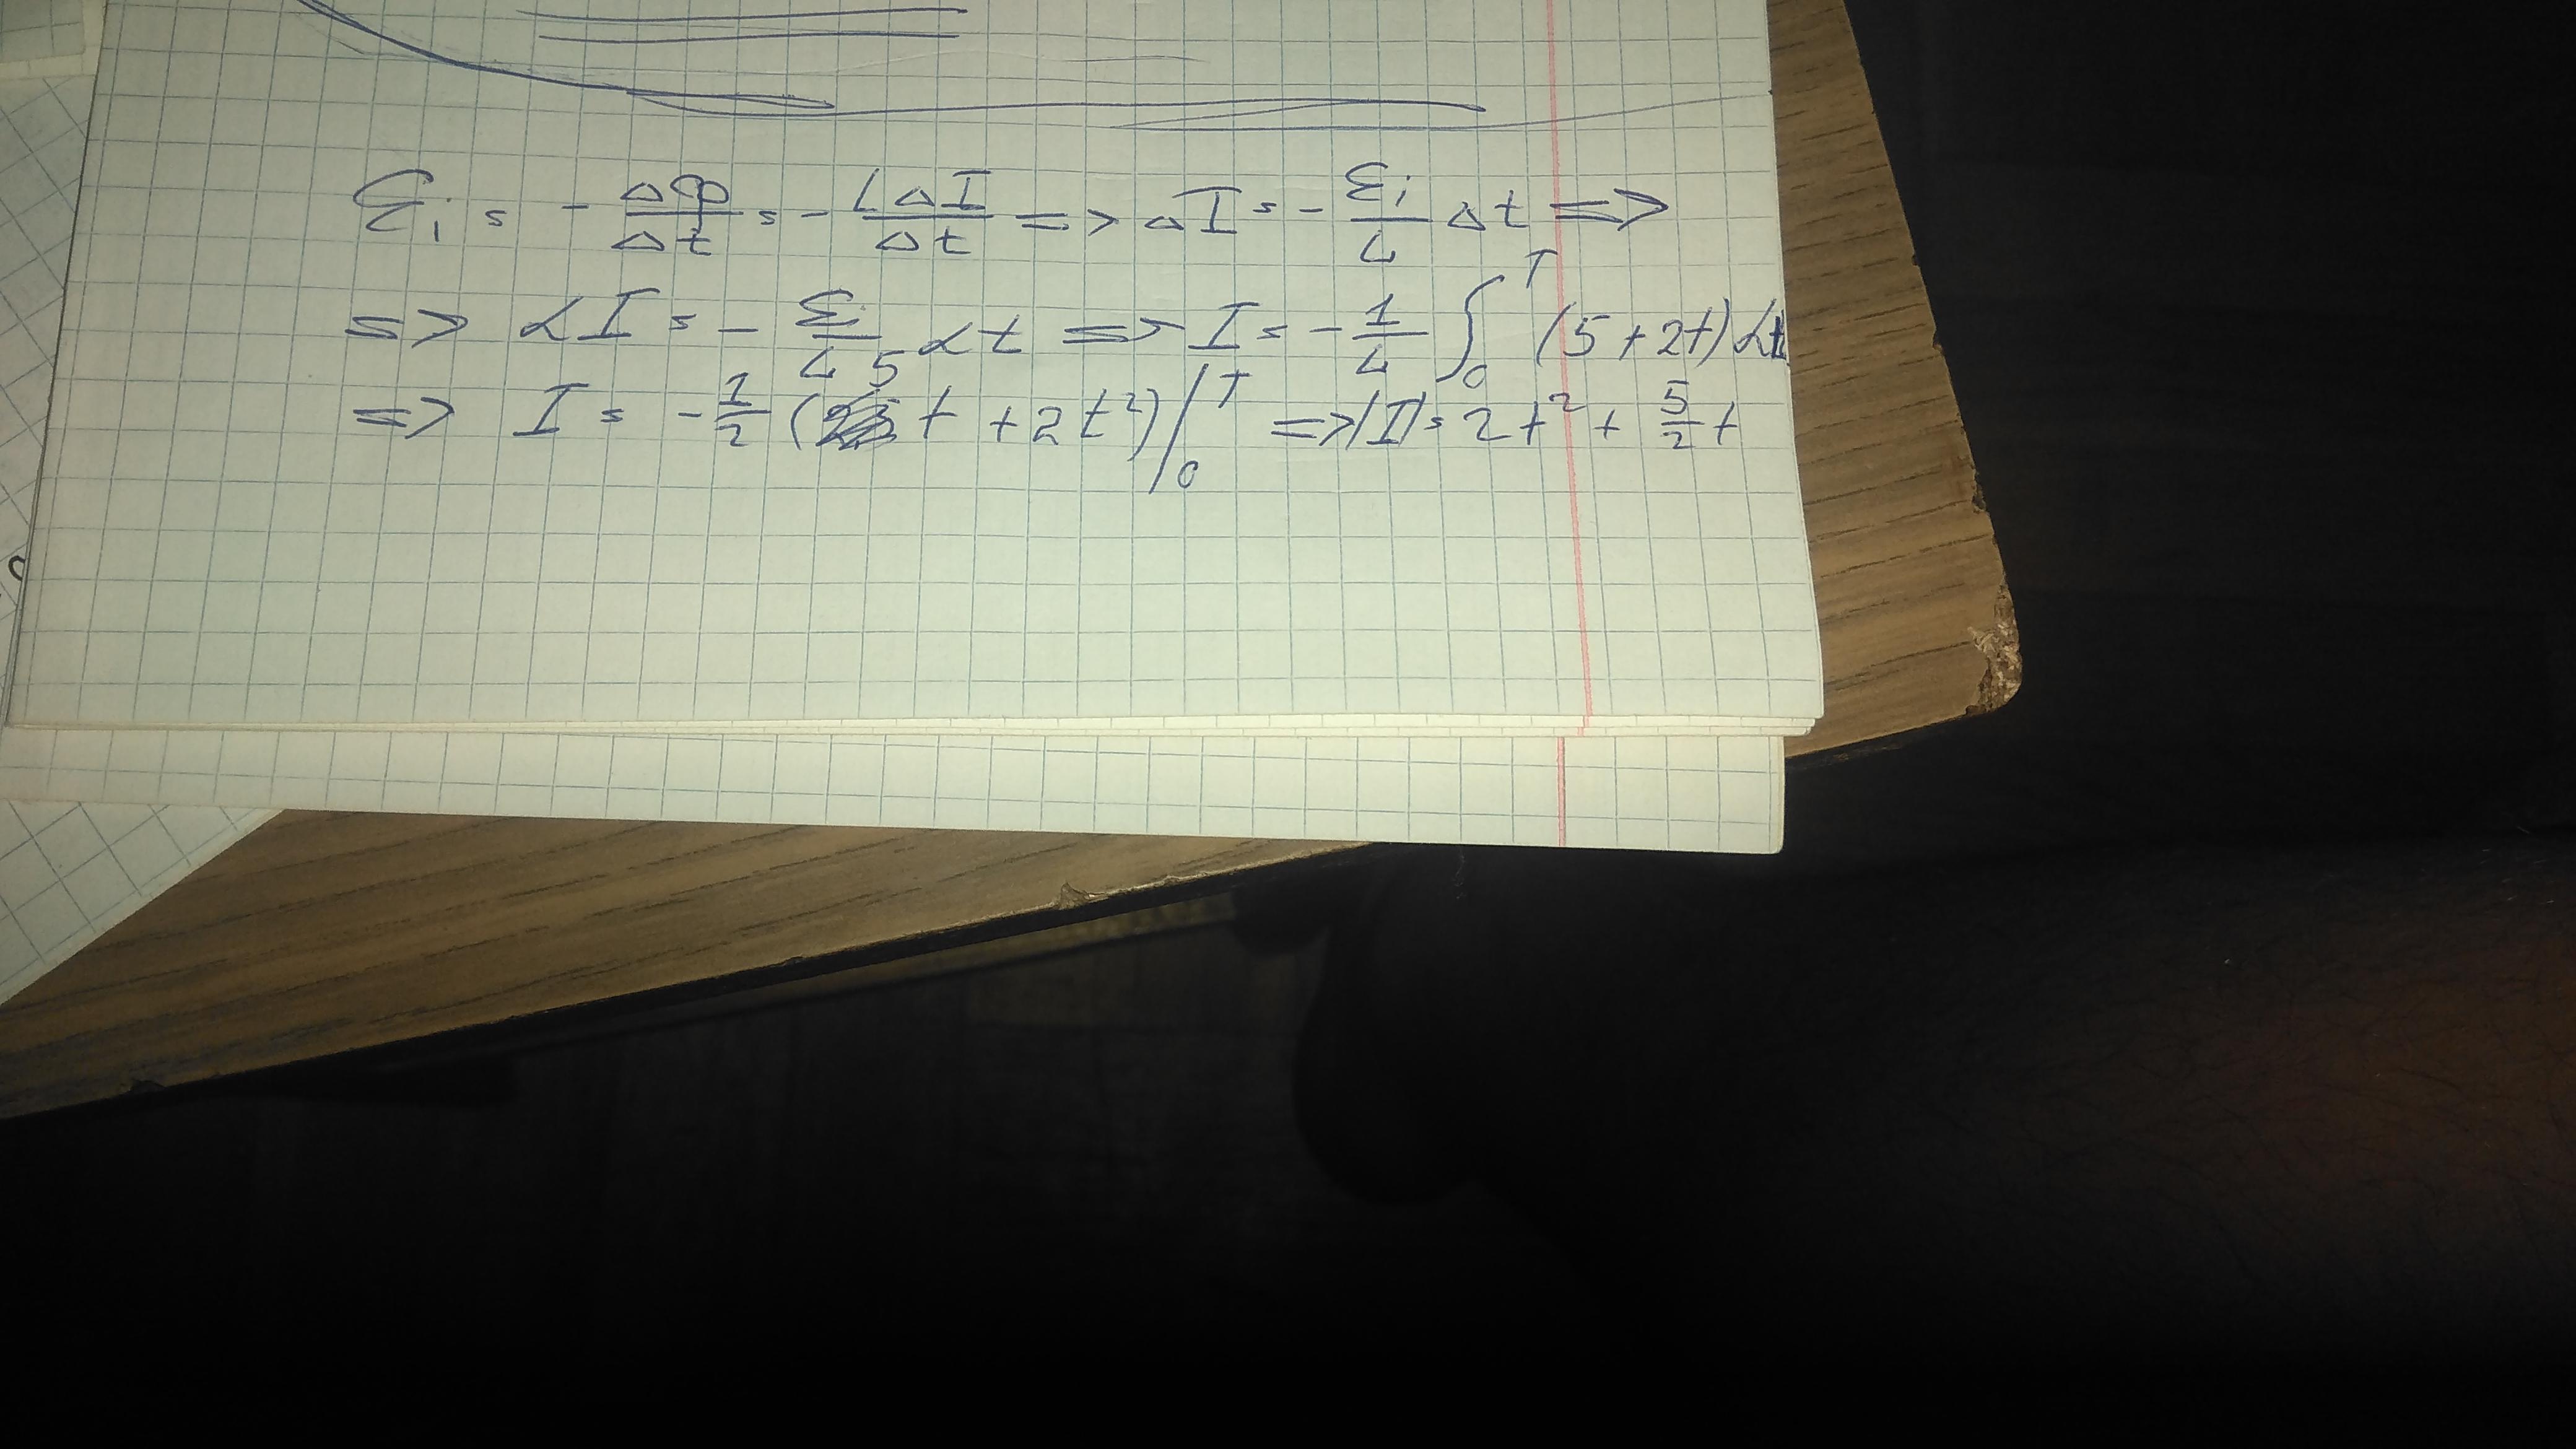 Ɛi = - ΔΦ/Δt = - LΔI/Δt => ΔI = - Ɛi/L Δt =>
=> dI = - Ɛi/L dt => I = - 1/L ∫₀ᵀ (5 + 2t) dt
=> I = - 1/2 (5t + 2t²)|₀ᵀ => |I| = 2t² + 5/2 t